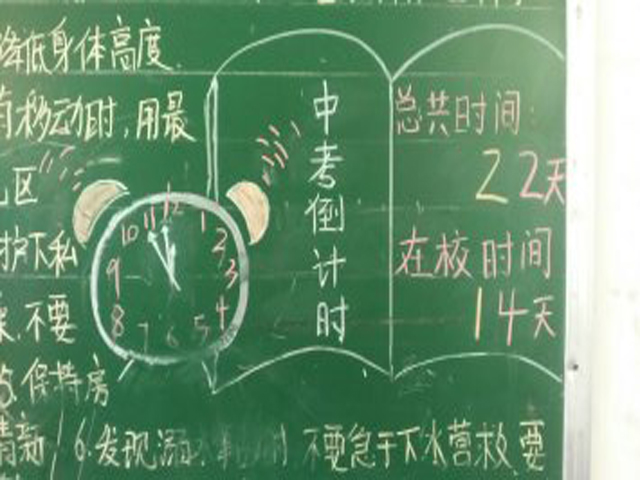 降低身体高度
移动时,用最
区
护下私
不要
保持房
清新/6.发现溺
不要急于下水营救,要
12
1
2
3
4
5
6
7
8
9
10
11
中考倒计时
总共时间:
22天
在校时间
14天